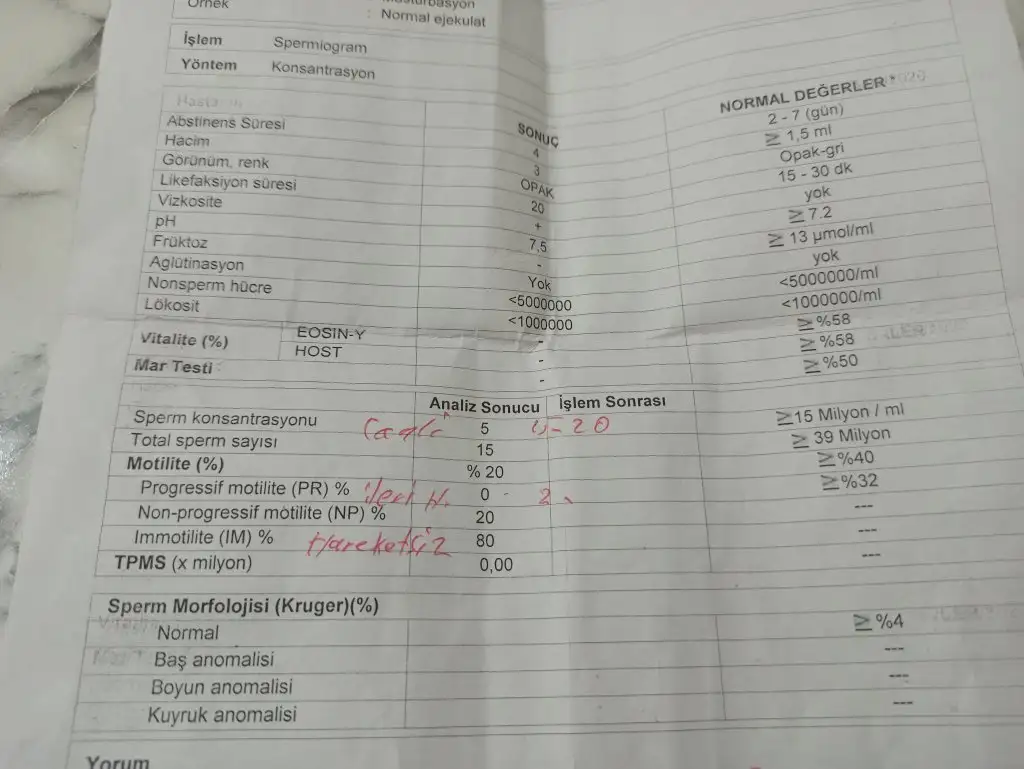 Örnek
: Normal ejekulat
İşlem Spermiogram
Yöntem Konsantrasyon
SONUÇ NORMAL DEĞERLER
Abstinens Süresi 4 2 - 7 (gün)
Hacim 3 ≥ 1,5 ml
Görünüm, renk OPAK Opak-gri
Likefaksiyon süresi 20 15 - 30 dk
Vizkosite + yok
pH 7,5 ≥ 7.2
Früktoz - ≥ 13 µmol/ml
Aglütinasyon Yok yok
Nonsperm hücre <5000000 <5000000/ml
Lökosit <1000000 <1000000/ml
Vitalite (%) EOSIN-Y - ≥ %58
HOST - ≥ %58
Mar Testi - ≥ %50
Analiz Sonucu İşlem Sonrası
Sperm konsantrasyonu 5 ≥15 Milyon / ml
Total sperm sayısı 15 ≥ 39 Milyon
Motilite (%) % 20 ≥%40
Progressif motilite (PR) % 0 - 2 ≥%32
Non-progressif motilite (NP) % 20 ---
Immotilite (IM) % Hareketsiz 80 ---
TPMS (x milyon) 0,00 ---
Sperm Morfolojisi (Kruger)(%)
Normal ≥ %4
Baş anomalisi ---
Boyun anomalisi ---
Kuyruk anomalisi ---
Yorum